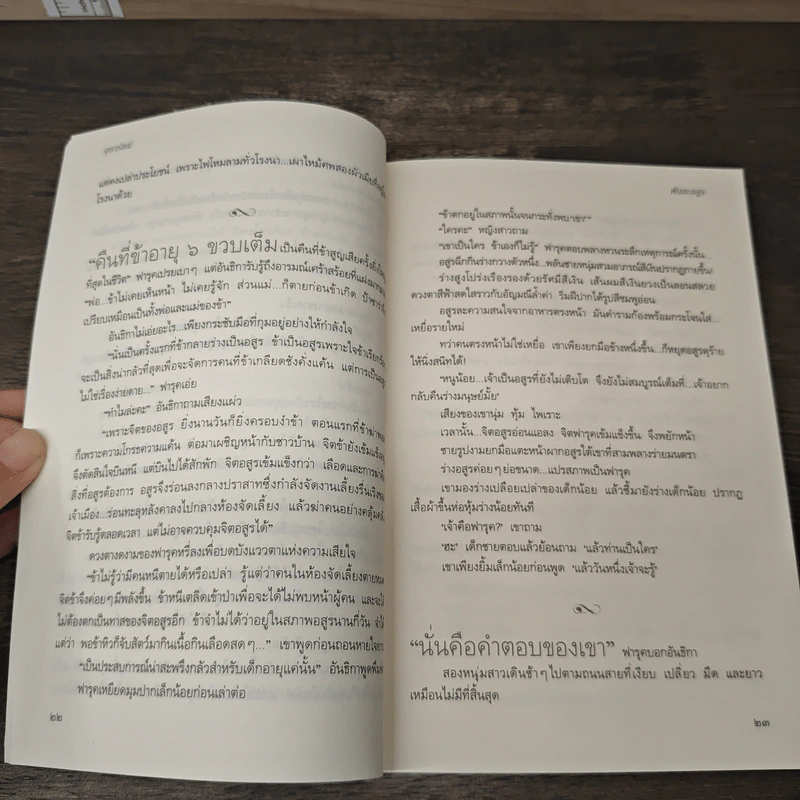 จุฑารัตน์
แต่คงเปล่าประโยชน์ เพราะไฟโหมลามทั่วโรงนา...เผาไหม้ศพสองผัวเมีย
โรงนาด้วย
“คืนที่ข้าอายุ ๖ ขวบเต็ม เป็นคืนที่ข้าสูญเสียครั้งยิ่งใหญ่
ที่สุดในชีวิต” ฟารุคเปรยเบาๆ แต่อันธิการับรู้ถึงอารมณ์เศร้าสร้อยที่แฝงมา
“พ่อ...ข้าไม่เคยเห็นหน้า ไม่เคยรู้จัก ส่วนแม่...ก็ตายก่อนข้าเกิด ป้าซาร่า
เปรียบเหมือนเป็นทั้งพ่อและแม่ของข้า”
อันธิกาไม่เอ่ยอะไร...เพียงกระชับมือที่กุมอยู่อย่างให้กำลังใจ
“นั่นเป็นครั้งแรกที่ข้ากลายร่างเป็นอสูร ข้าเป็นอสูรเพราะใจข้าเรียก
จะเป็นสิ่งน่ากลัวที่สุดเพื่อจะจัดการคนที่ข้าเกลียดชังคั่งแค้น แต่การเป็น
ไม่ใช่เรื่องง่ายดาย...” ฟารุคเอ่ย
“ทำไมล่ะคะ” อันธิกาถามเสียงแผ่ว
“เพราะจิตของอสูร ยิ่งนานวันก็ยิ่งครอบงำข้า ตอนแรกที่ข้าฆ่า
ก็เพราะความโกรธความแค้น ต่อมาเผชิญหน้ากับชาวบ้าน จิตข้ายังเข้มแข็ง
จึงตัดสินใจบินหนี แต่บินไปได้สักพัก จิตอสูรเข้มแข็งกว่า เลือดและการฆ่า
สิ่งที่อสูรต้องการ อสูรจึงร่อนลงกลางปราสาทซึ่งกำลังจัดงานเลี้ยงรื่นเริงของ
เจ้าเมือง...ร่อนทะลุหลังคาลงไปกลางห้องจัดเลี้ยง แล้วฆ่าคนอย่างคลุ้มคลั่ง
จิตข้ารับรู้ตลอดเวลา แต่ไม่อาจควบคุมจิตอสูรได้”
ดวงตางดงามของฟารุคหรี่ลงเพื่อบดบังแววตาแห่งความเสียใจ
“ข้าไม่รู้ว่ามีคนหนีตายได้หรือเปล่า รู้แต่ว่าคนในห้องจัดเลี้ยงตายหมด
จิตข้าจึงค่อยๆ มีพลังขึ้น ข้าหนีเตลิดเข้าป่าเพื่อจะได้ไม่พบหน้าผู้คน และจะได้
ไม่ต้องตกเป็นทาสของจิตอสูรอีก ข้าจำไม่ได้ว่าอยู่ในสภาพอสูรนานกี่วัน จำได้
แต่ว่า พอข้าหิวก็จับสัตว์มากินเนื้อกินเลือดสดๆ...” เขาพูดก่อนถอนหายใจยาว
“เป็นประสบการณ์น่าสะพรึงกลัวสำหรับเด็กอายุแค่นั้น” อันธิกาพูด
ฟารุคเหยียดมุมปากเล็กน้อยก่อนเล่าต่อ
๒๒
“ข้าตกอยู่ในสภาพนั้นจนกระทั่งพบ ‘เขา’”
“ใครคะ” หญิงสาวถาม
“เขาเป็นใคร ข้าเองก็ไม่รู้” ฟารุคตอบพลางหวนระลึกเหตุการณ์ครั้งนั้น...
อสูรฉีกกินร่างกวางตัวหนึ่ง...พลันชายหนุ่มสวมอาภรณ์สีเงินปรากฏกายขึ้น!
ร่างสูงโปร่งเรืองรองด้วยรัศมีสีเงิน เส้นผมสีเงินยวงเป็นลอนสลวย
ดวงตาสีฟ้าสดใสราวกับอัญมณีล้ำค่า ริมฝีปากได้รูปสีชมพูอ่อน
อสูรละความสนใจจากอาหารตรงหน้า มันคำรามก้องพร้อมกระโจนใส่...
เหยื่อรายใหม่
ทว่าคนตรงหน้าไม่ใช่เหยื่อ เขาเพียงยกมือข้างหนึ่งขึ้น...ก็หยุดอสูรดุร้าย
ให้นิ่งสนิทได้!
‘หนูน้อย...เจ้าเป็นอสูรที่ยังไม่เติบโต จึงยังไม่สมบูรณ์เต็มที่...เจ้าอยาก
กลับคืนร่างมนุษย์มั้ย’
เสียงของเขานุ่ม ทุ้ม ไพเราะ
เวลานั้น...จิตอสูรอ่อนแอลง จิตฟารุคเข้มแข็งขึ้น จึงพยักหน้า
ชายรูปงามยกมือแตะหน้าผากอสูรใต้เขาที่สามพลางร่ายมนตรา
ร่างอสูรค่อยๆ ย่อขนาด...แปรสภาพเป็นฟารุค
เขามองร่างเปลือยเปล่าของเด็กน้อย แล้วชี้มายังร่างเด็กน้อย ปรากฏ
เสื้อผ้าขึ้นห่อหุ้มร่างน้อยทันที
‘เจ้าคือฟารุค?’ เขาถาม
‘ฮะ’ เด็กชายตอบแล้วย้อนถาม ‘แล้วท่านเป็นใคร’
เขาเพียงยิ้มเล็กน้อยก่อนพูด ‘แล้ววันหนึ่งเจ้าจะรู้’
“นั่นคือคำตอบของเขา” ฟารุคบอกอันธิกา
สองหนุ่มสาวเดินช้าๆ ไปตามถนนสายที่เงียบ เปลี่ยว มืด และยาว
เหมือนไม่มีที่สิ้นสุด
๒๓